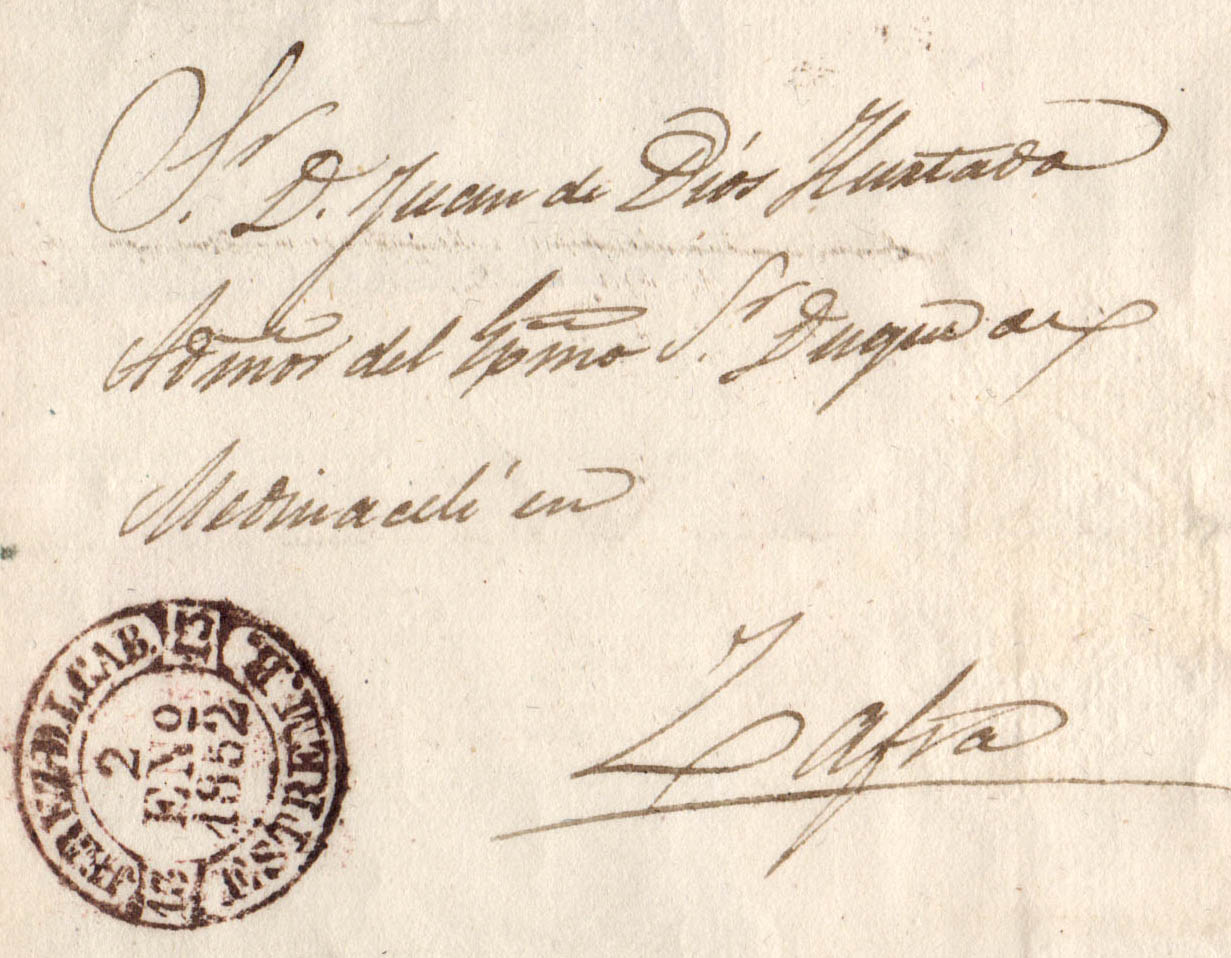 Sr. D. Juan de Dios Hurtado
Admor del Exmo Sr. Duque de
Medinaceli en
Zafra
JEREZ D L. CAB.
2
ENº
1852
13